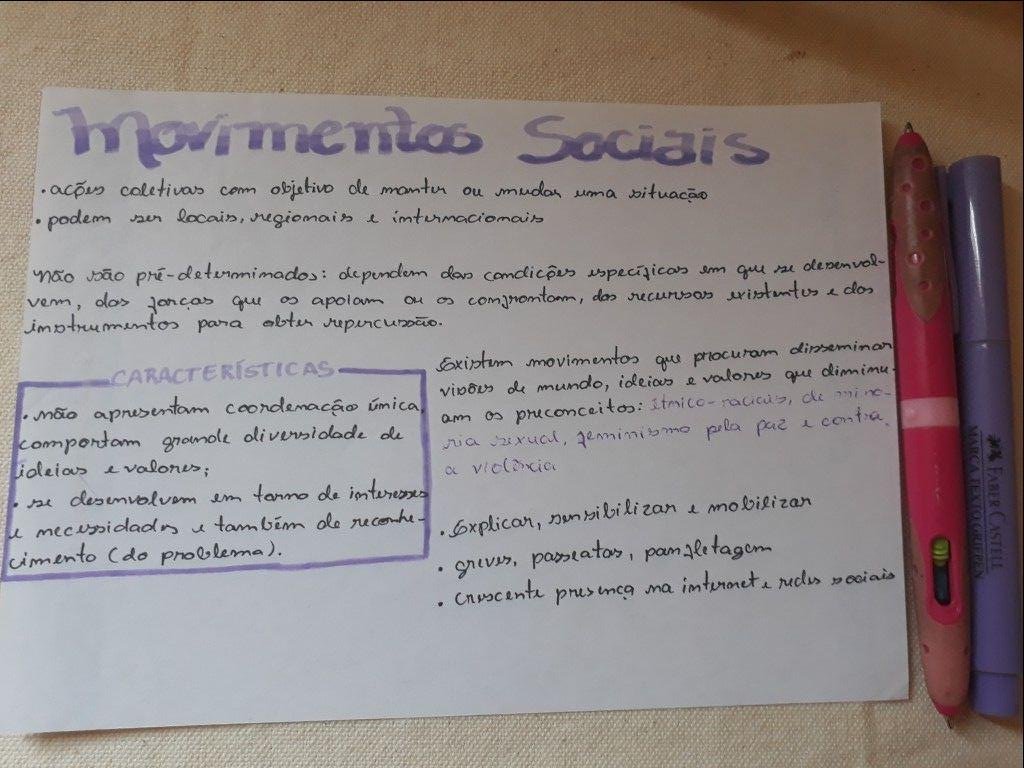 Movimentos Sociais
• ações coletivas com objetivo de manter ou mudar uma situação
• podem ser locais, regionais e internacionais
Não são pré-determinados: dependem das condições específicas em que se desenvol-
vem, das forças que os apoiam ou os confrontam, dos recursos existentes e dos
instrumentos para obter repercussão.
CARACTERÍSTICAS
• não apresentam coordenação única,
comportam grande diversidade de
ideias e valores;
• se desenvolvem em torno de interesses
e necessidades e também de reconhe-
cimento (do problema).
Existem movimentos que procuram disseminar
visões de mundo, ideias e valores que diminu-
am os preconceitos: étnico-raciais, de mino-
ria sexual, feminismo pela paz e contra
a violência
• Explicar, sensibilizar e mobilizar
• greves, passeatas, panfletagem
• crescente presença na internet e redes sociais
FABER CASTELL
MARCA TEXTO GRIFPEN